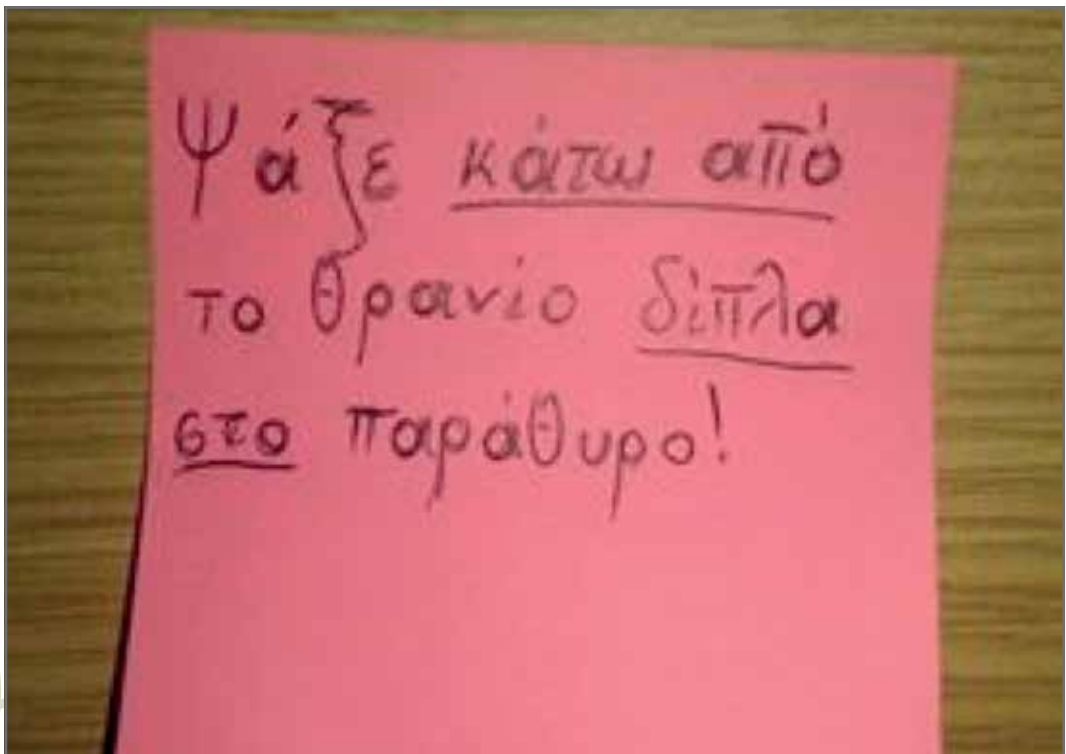 Ψάξε κάτω από
το θρανίο δίπλα
στο παράθυρο!